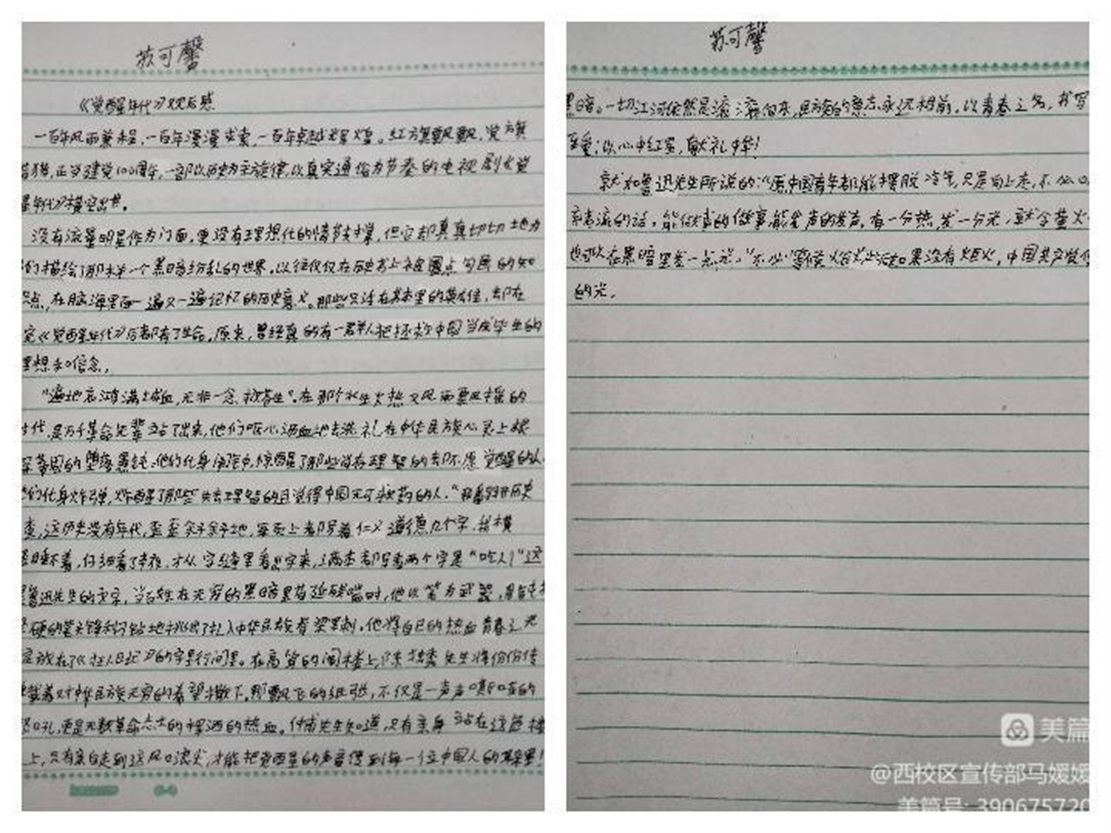 苏可馨
《觉醒年代》观后感
一百年风雨兼程,一百年漫漫求索,一百年卓越辉煌。红旗飘飘,党旗
猎猎,正当建党100周年,一部以历史为主旋律,以真实通俗为节奏的电视剧《觉
醒年代》横空出世。
没有流量明星作为门面,更没有理想化的情节支撑,但它却真真切切地为
们描绘了那样一个黑暗纷乱的世界。以往仅仅在历史书上被圈点勾画的知
点,在脑海里一遍又一遍记忆的历史意义。那些只活在书本里的英雄,却在
《觉醒年代》后都有了生命。原来,曾经真的有一群人把拯救中国当成毕生的
理想和信念。
“遍地哀鸿满城血,无非一念救苍生”。在那个水生火热又风雨飘摇的
时代,是万千革命先辈站了出来,他们呕心沥血地去洗礼在中华民族心灵上根
深蒂固的堕落愚钝;他们化身闹钟,惊醒了那些尚存理智的却不愿觉醒的人
他们化身炸弹,炸醒了那些失去理智的且觉得中国无可救药的人。“我翻开历史
查,这历史没有年代,歪歪斜斜地,每页上都写着仁义道德几个字,我横
竖睡不着,仔细看了半夜,才从字缝里看出字来,满本都写着两个字是“吃人”!”这
是鲁迅先生的文字,当百姓在无穷的黑暗里苟延残喘时,他以笔为武器,用
坚硬的笔尖锋利刁钻地挑出了扎入中华民族脊梁里刺。他将自己的热血青春之光
绽放在了《狂人日记》的字里行间里。在高耸的阁楼上,陈独秀先生将份份传
载着对中华民族无穷的希望撒下。那飘飞的纸张,不仅是一声声嘶哑的
怒吼,更是无数革命志士的挥洒的热血。仲甫先生知道,只有亲身站在这危楼
上,只有亲自走到这风口浪尖,才能把觉醒的声音传到每一个位中国人的耳朵里!
苏可馨
黑暗。一切江河依然是滚滚向东,民族的意志永远向前。以青春之名,书写
挚爱;以心中红星,献礼中华!
就如鲁迅先生所说的:“愿中国青年都能摆脱冷气,只是向上走,不必听
弃者流的话,能做事的做事,能发声的发声。有一分热,发一分光,就令萤火一
也可以在黑暗里发一点光,”不必等候炬火。此后如果没有炬火,中国共产党
的光。
美篇
@西校区宣传部马媛媛
美篇号: 390675720